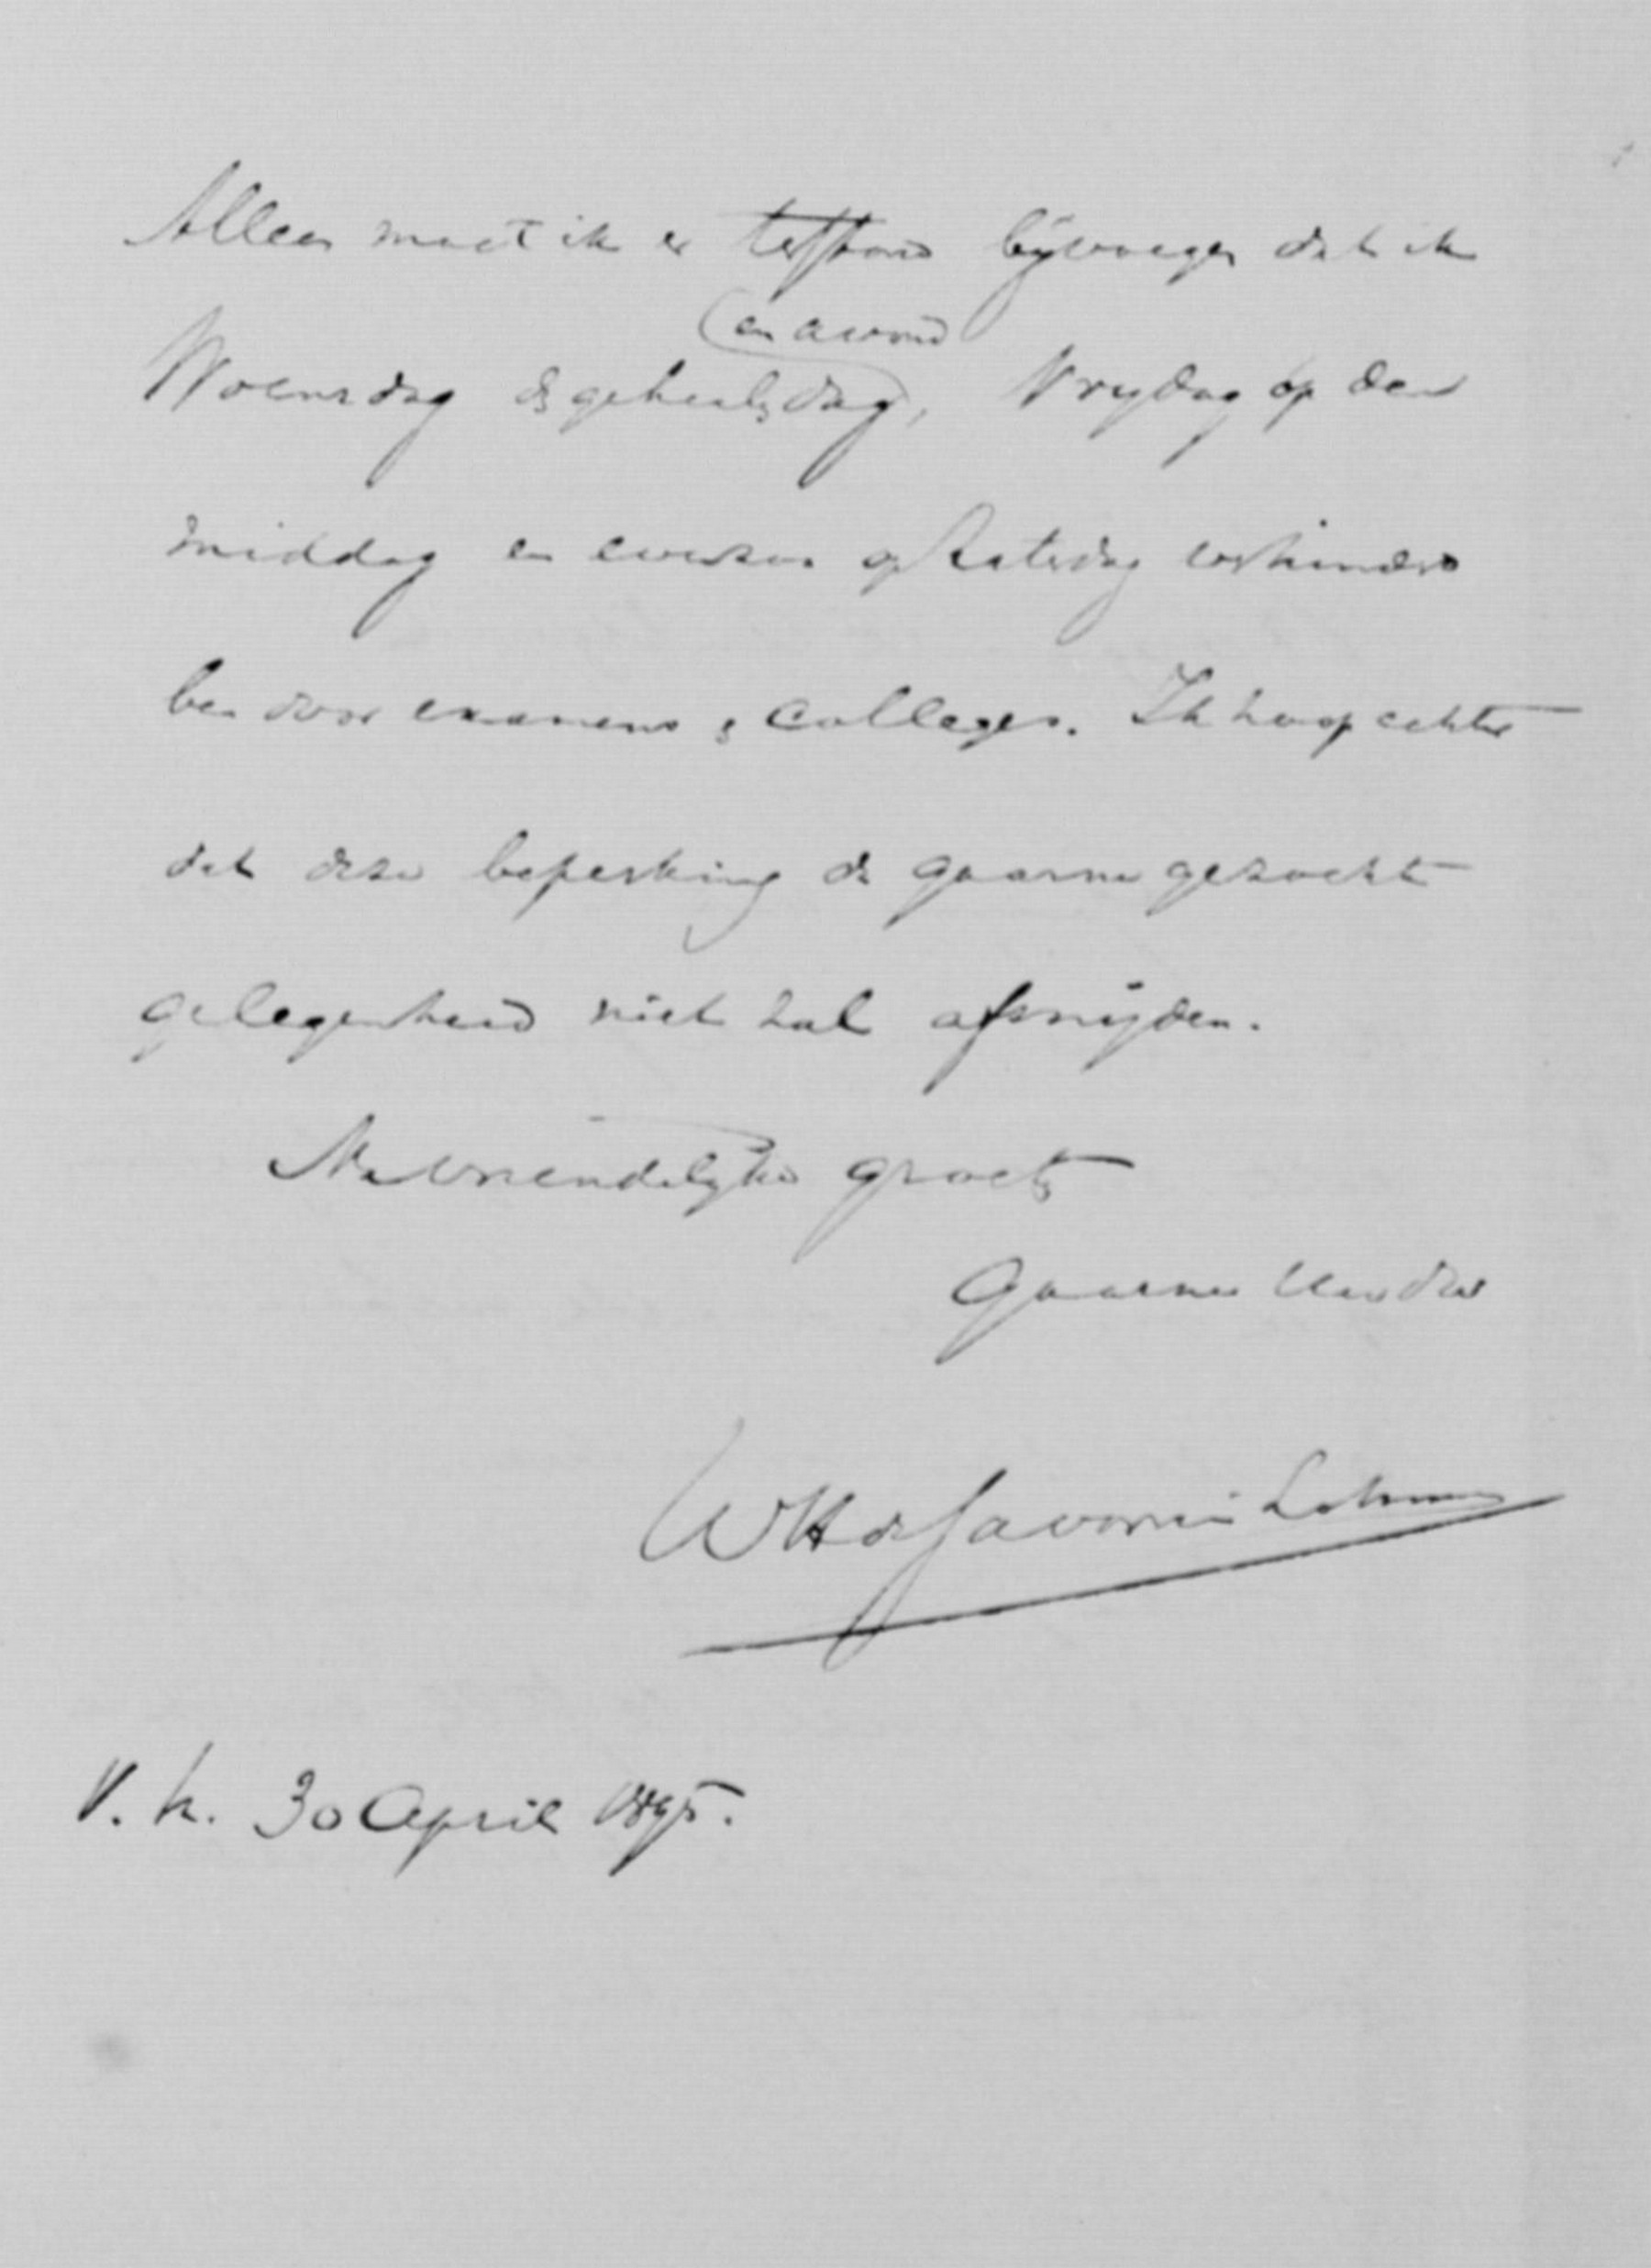 Alleen moet ik er terstond bijvoegen dat ik
(en avond
Woensdag de geheele dag, Vrijdag op den
middag en evenzoo op Zaterdag verhinderd
ben door examens & colleges. Ik hoop echter
dat deze beperking de gaarne gezochte
gelegenheid niet zal afsnijden.
Na vriendelijke groete
Gaarne
WH de Savornin Lohman
V. h. 30 April 1895.